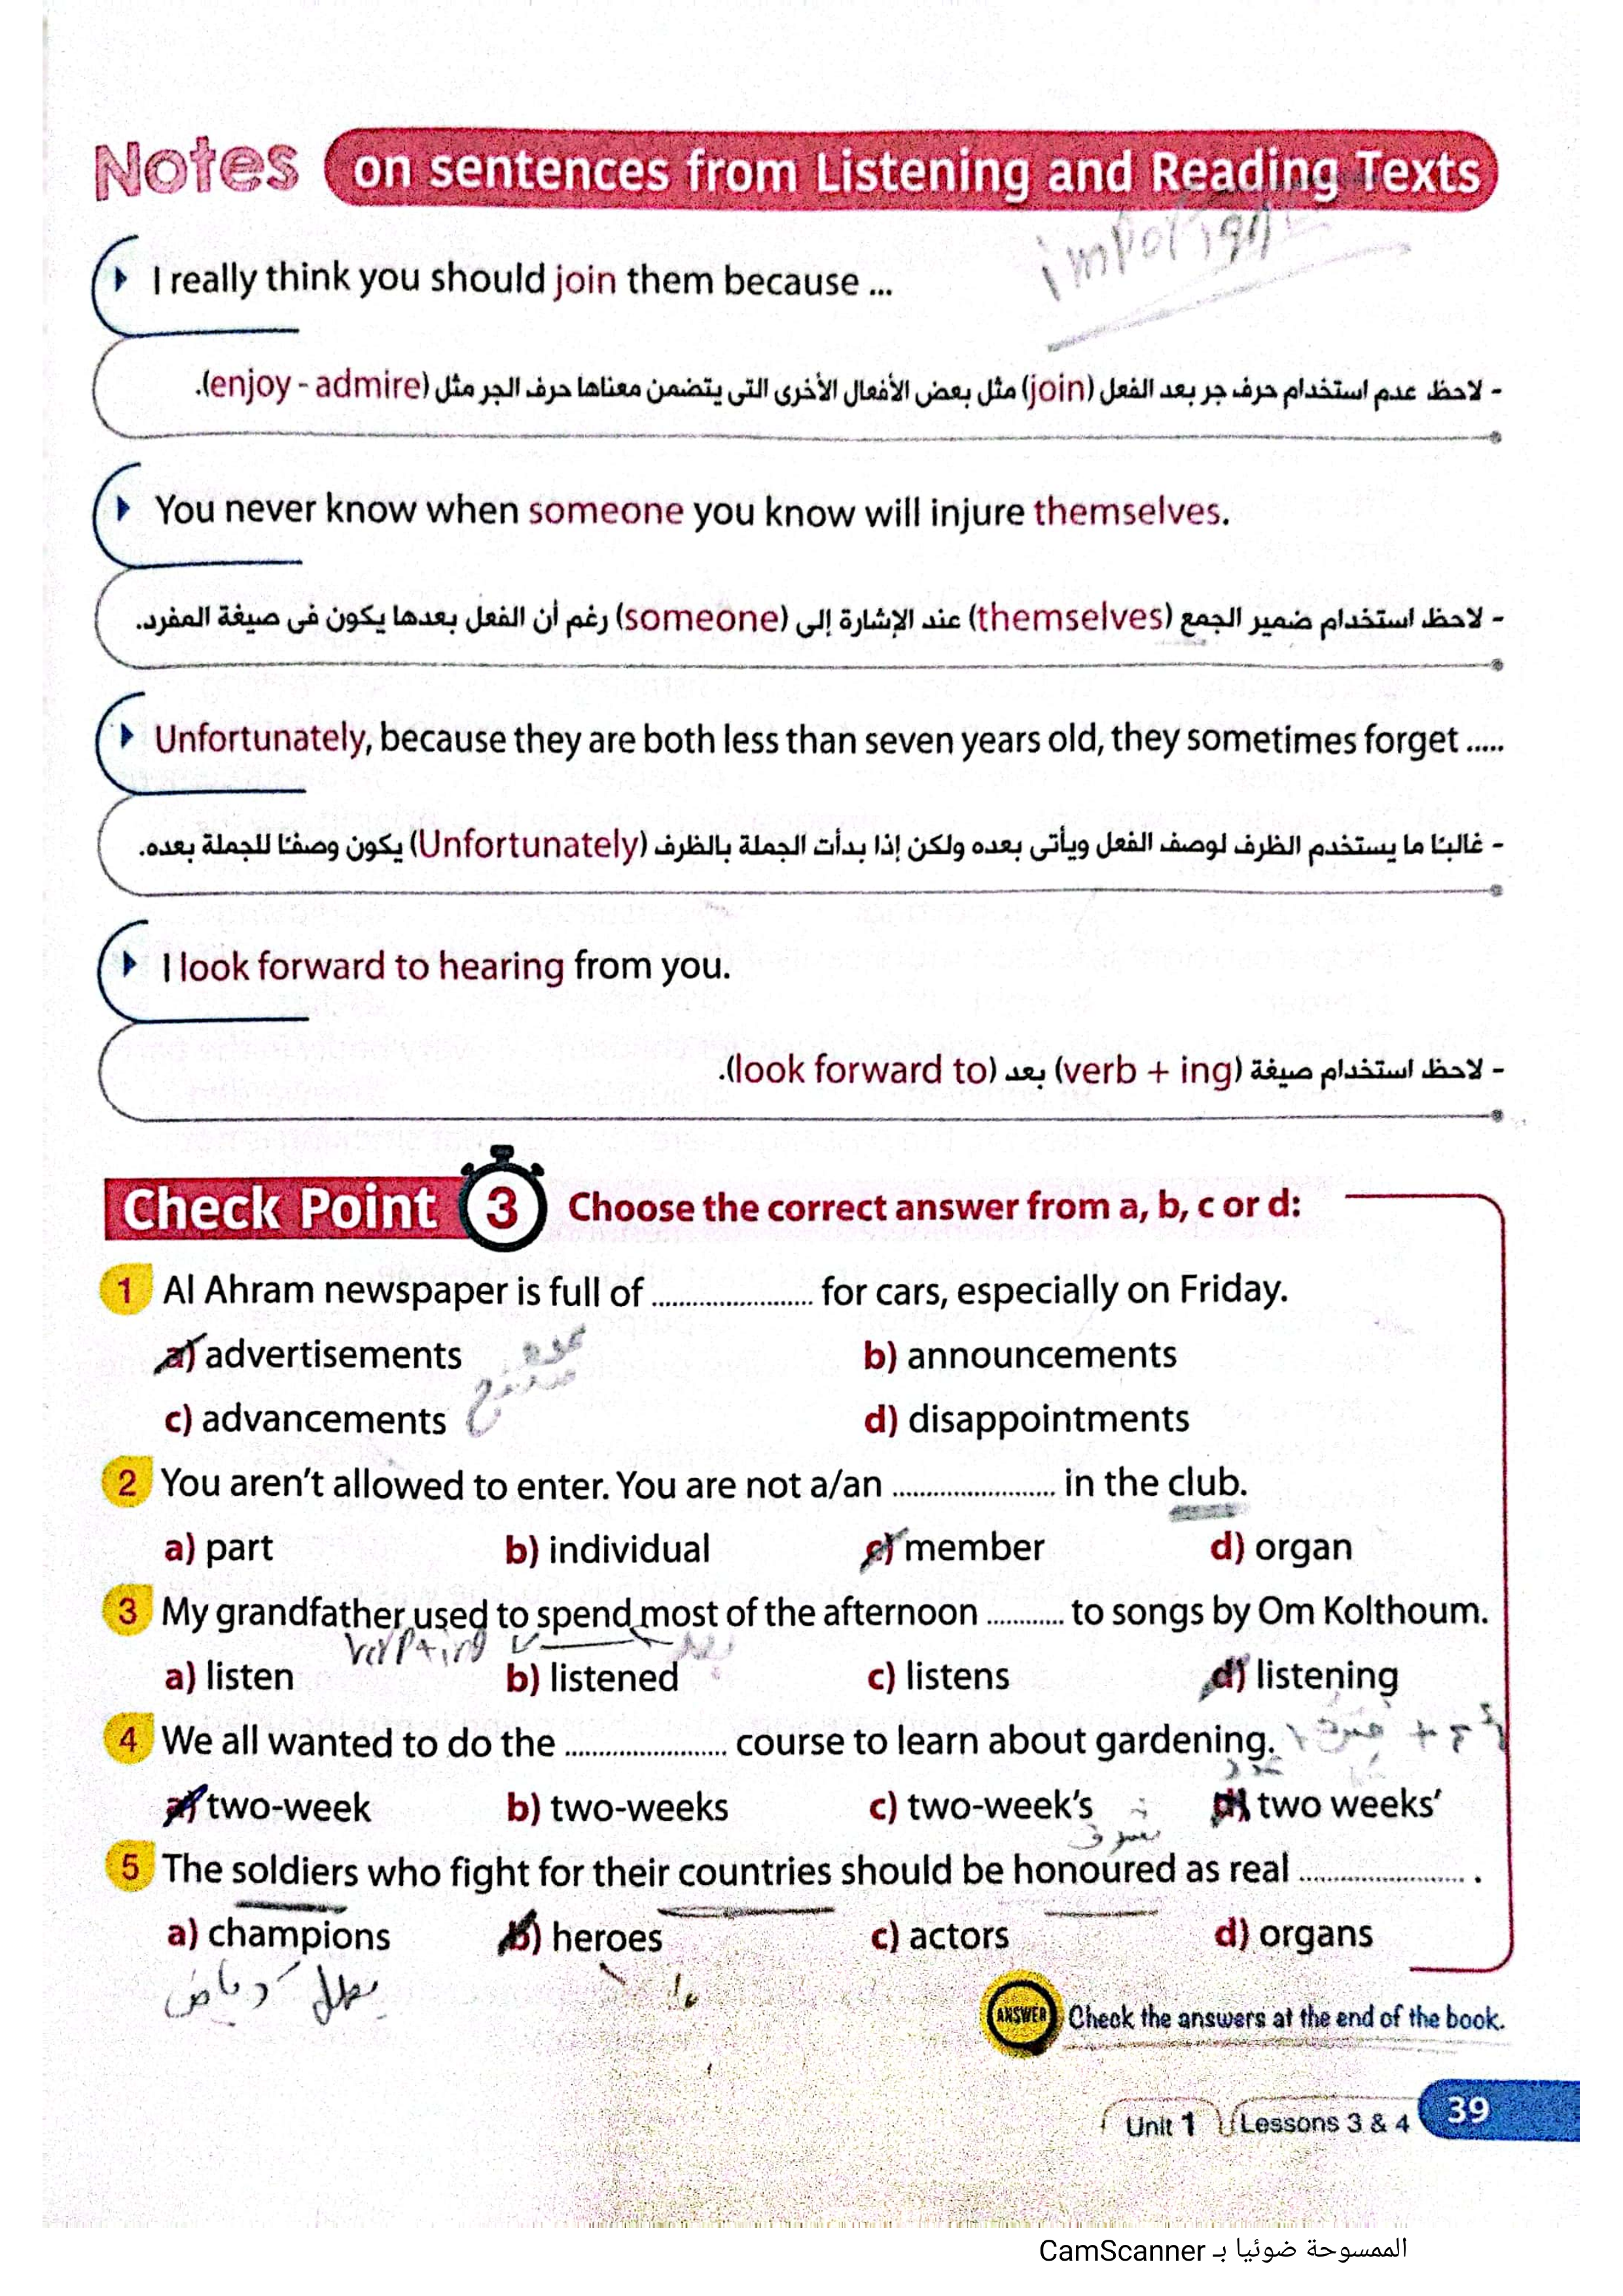 Notes on sentences from Listening and Reading Texts
I really think you should join them because ...
- لاحظ عدم استخدام حرف جر بعد الفعل (join) مثل بعض الأفعال الأخرى التى يتضمن معناها حرف الجر مثل (enjoy - admire).
You never know when someone you know will injure themselves.
- لاحظ استخدام ضمير الجمع (themselves) عند الإشارة إلى (someone) رغم أن الفعل بعدها يكون فى صيغة المفرد.
Unfortunately, because they are both less than seven years old, they sometimes forget .....
- غالبًا ما يستخدم الظرف لوصف الفعل ويأتى بعده ولكن إذا بدأت الجملة بالظرف (Unfortunately) يكون وصفًا للجملة بعده.
I look forward to hearing from you.
- لاحظ استخدام صيغة (verb + ing) بعد (look forward to).
Check Point 3 Choose the correct answer from a, b, c or d:
1 Al Ahram newspaper is full of ........................ for cars, especially on Friday.
a) advertisements b) announcements
c) advancements d) disappointments
2 You aren't allowed to enter. You are not a/an ........................ in the club.
a) part b) individual c) member d) organ
3 My grandfather used to spend most of the afternoon ............ to songs by Om Kolthoum.
verb + ing بعد
a) listen b) listened c) listens d) listening
4 We all wanted to do the ........................ course to learn about gardening.
عدد
a) two-week b) two-weeks c) two-week's d) two weeks'
5 The soldiers who fight for their countries should be honoured as real ........................ .
a) champions b) heroes c) actors d) organs
بطل رياضى
ANSWER Check the answers at the end of the book.
Unit 1 Lessons 3 & 4 39
الممسوحة ضوئيا بـ CamScanner